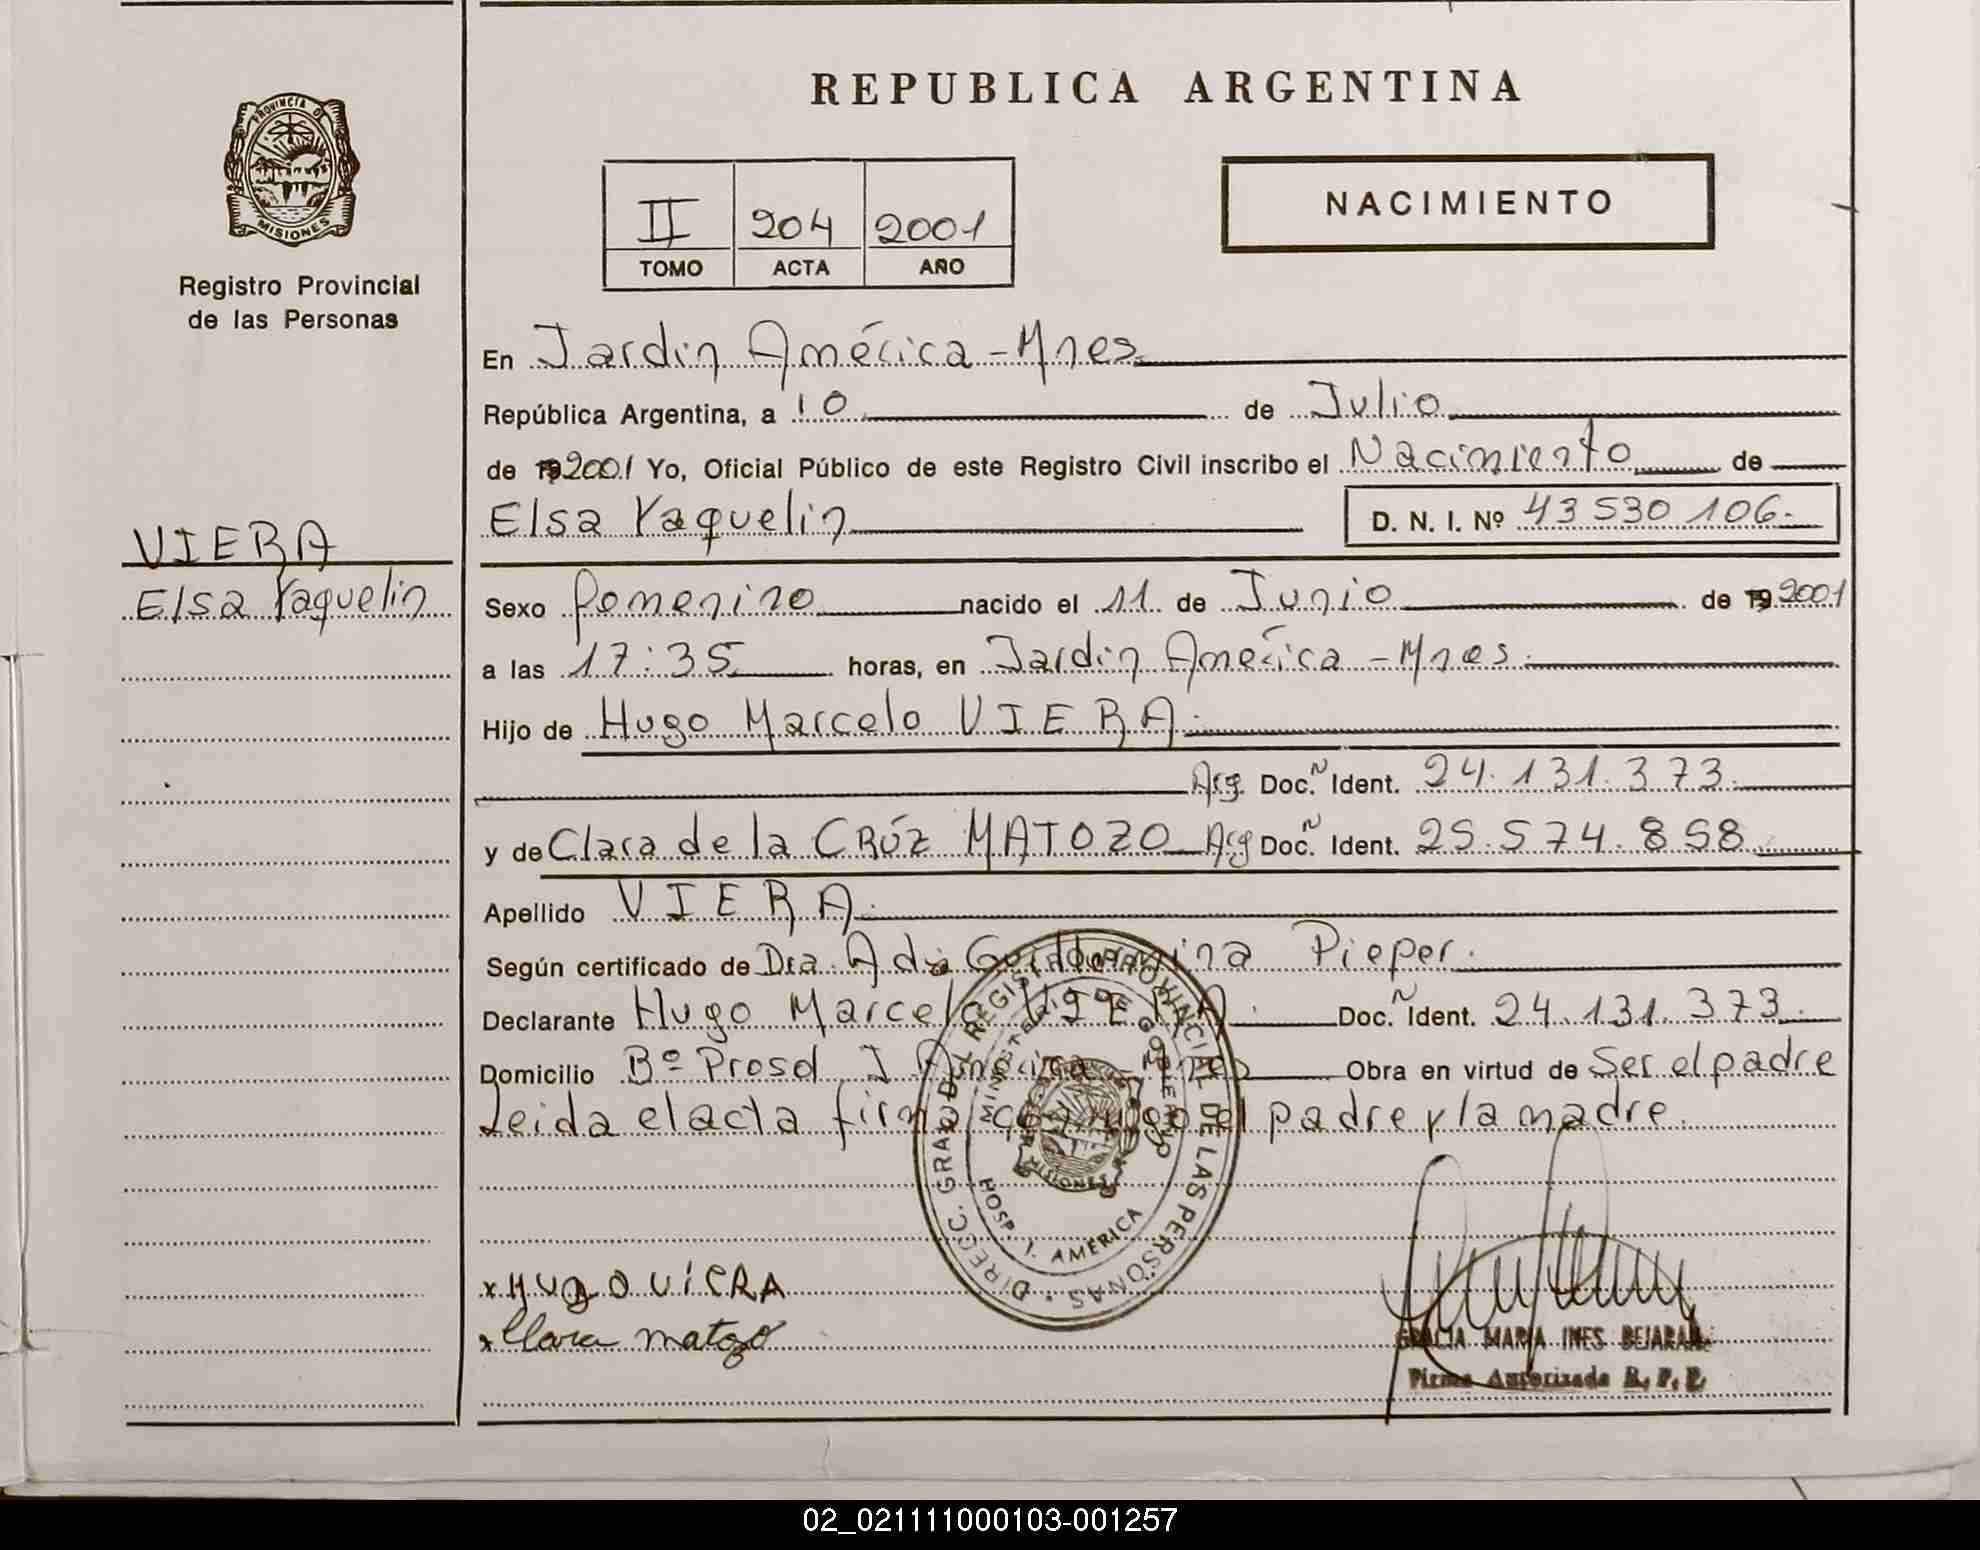 REPUBLICA ARGENTINA
PROVINCIA DE
MISIONES
Registro Provincial
de las Personas
NACIMIENTO
II 204 2001
TOMO ACTA AÑO
En Jardin América - Mnes.
República Argentina, a 10 de Julio
de 192001 Yo, Oficial Público de este Registro Civil inscribo el Nacimiento de
Elsa Yaquelin D. N. I. Nº 43 530 106.
VIERA
Elsa Yaquelin
Sexo Femenino nacido el 11 de Junio de 19 2001
a las 17:35 horas, en Jardin América - Mnes.
Hijo de Hugo Marcelo VIERA.
Arg. Doc. N Ident. 24.131.373.
y de Clara de la CRÚZ MATOZO Arg Doc. N Ident. 25.574.858
Apellido VIERA.
Según certificado de Dra. Pieper.
Declarante Hugo Marcelo VIERA. Doc. N Ident. 24.131.373.
Domicilio Bº Prosol J América - Mnes Obra en virtud de Ser el padre
Leida el acta firma conmigo el padre y la madre.
DIRECC. GRAL. DEL REGISTRO PROVINCIAL DE LAS PERSONAS
MINISTERIO DE GOBIERNO
MISIONES
HOSP. J. AMERICA
x HUGO ViERA
x Clara matozo
GRACIA MARIA INES BEJARAN.
Firma Autorizada R. P. P.
02_021111000103-001257